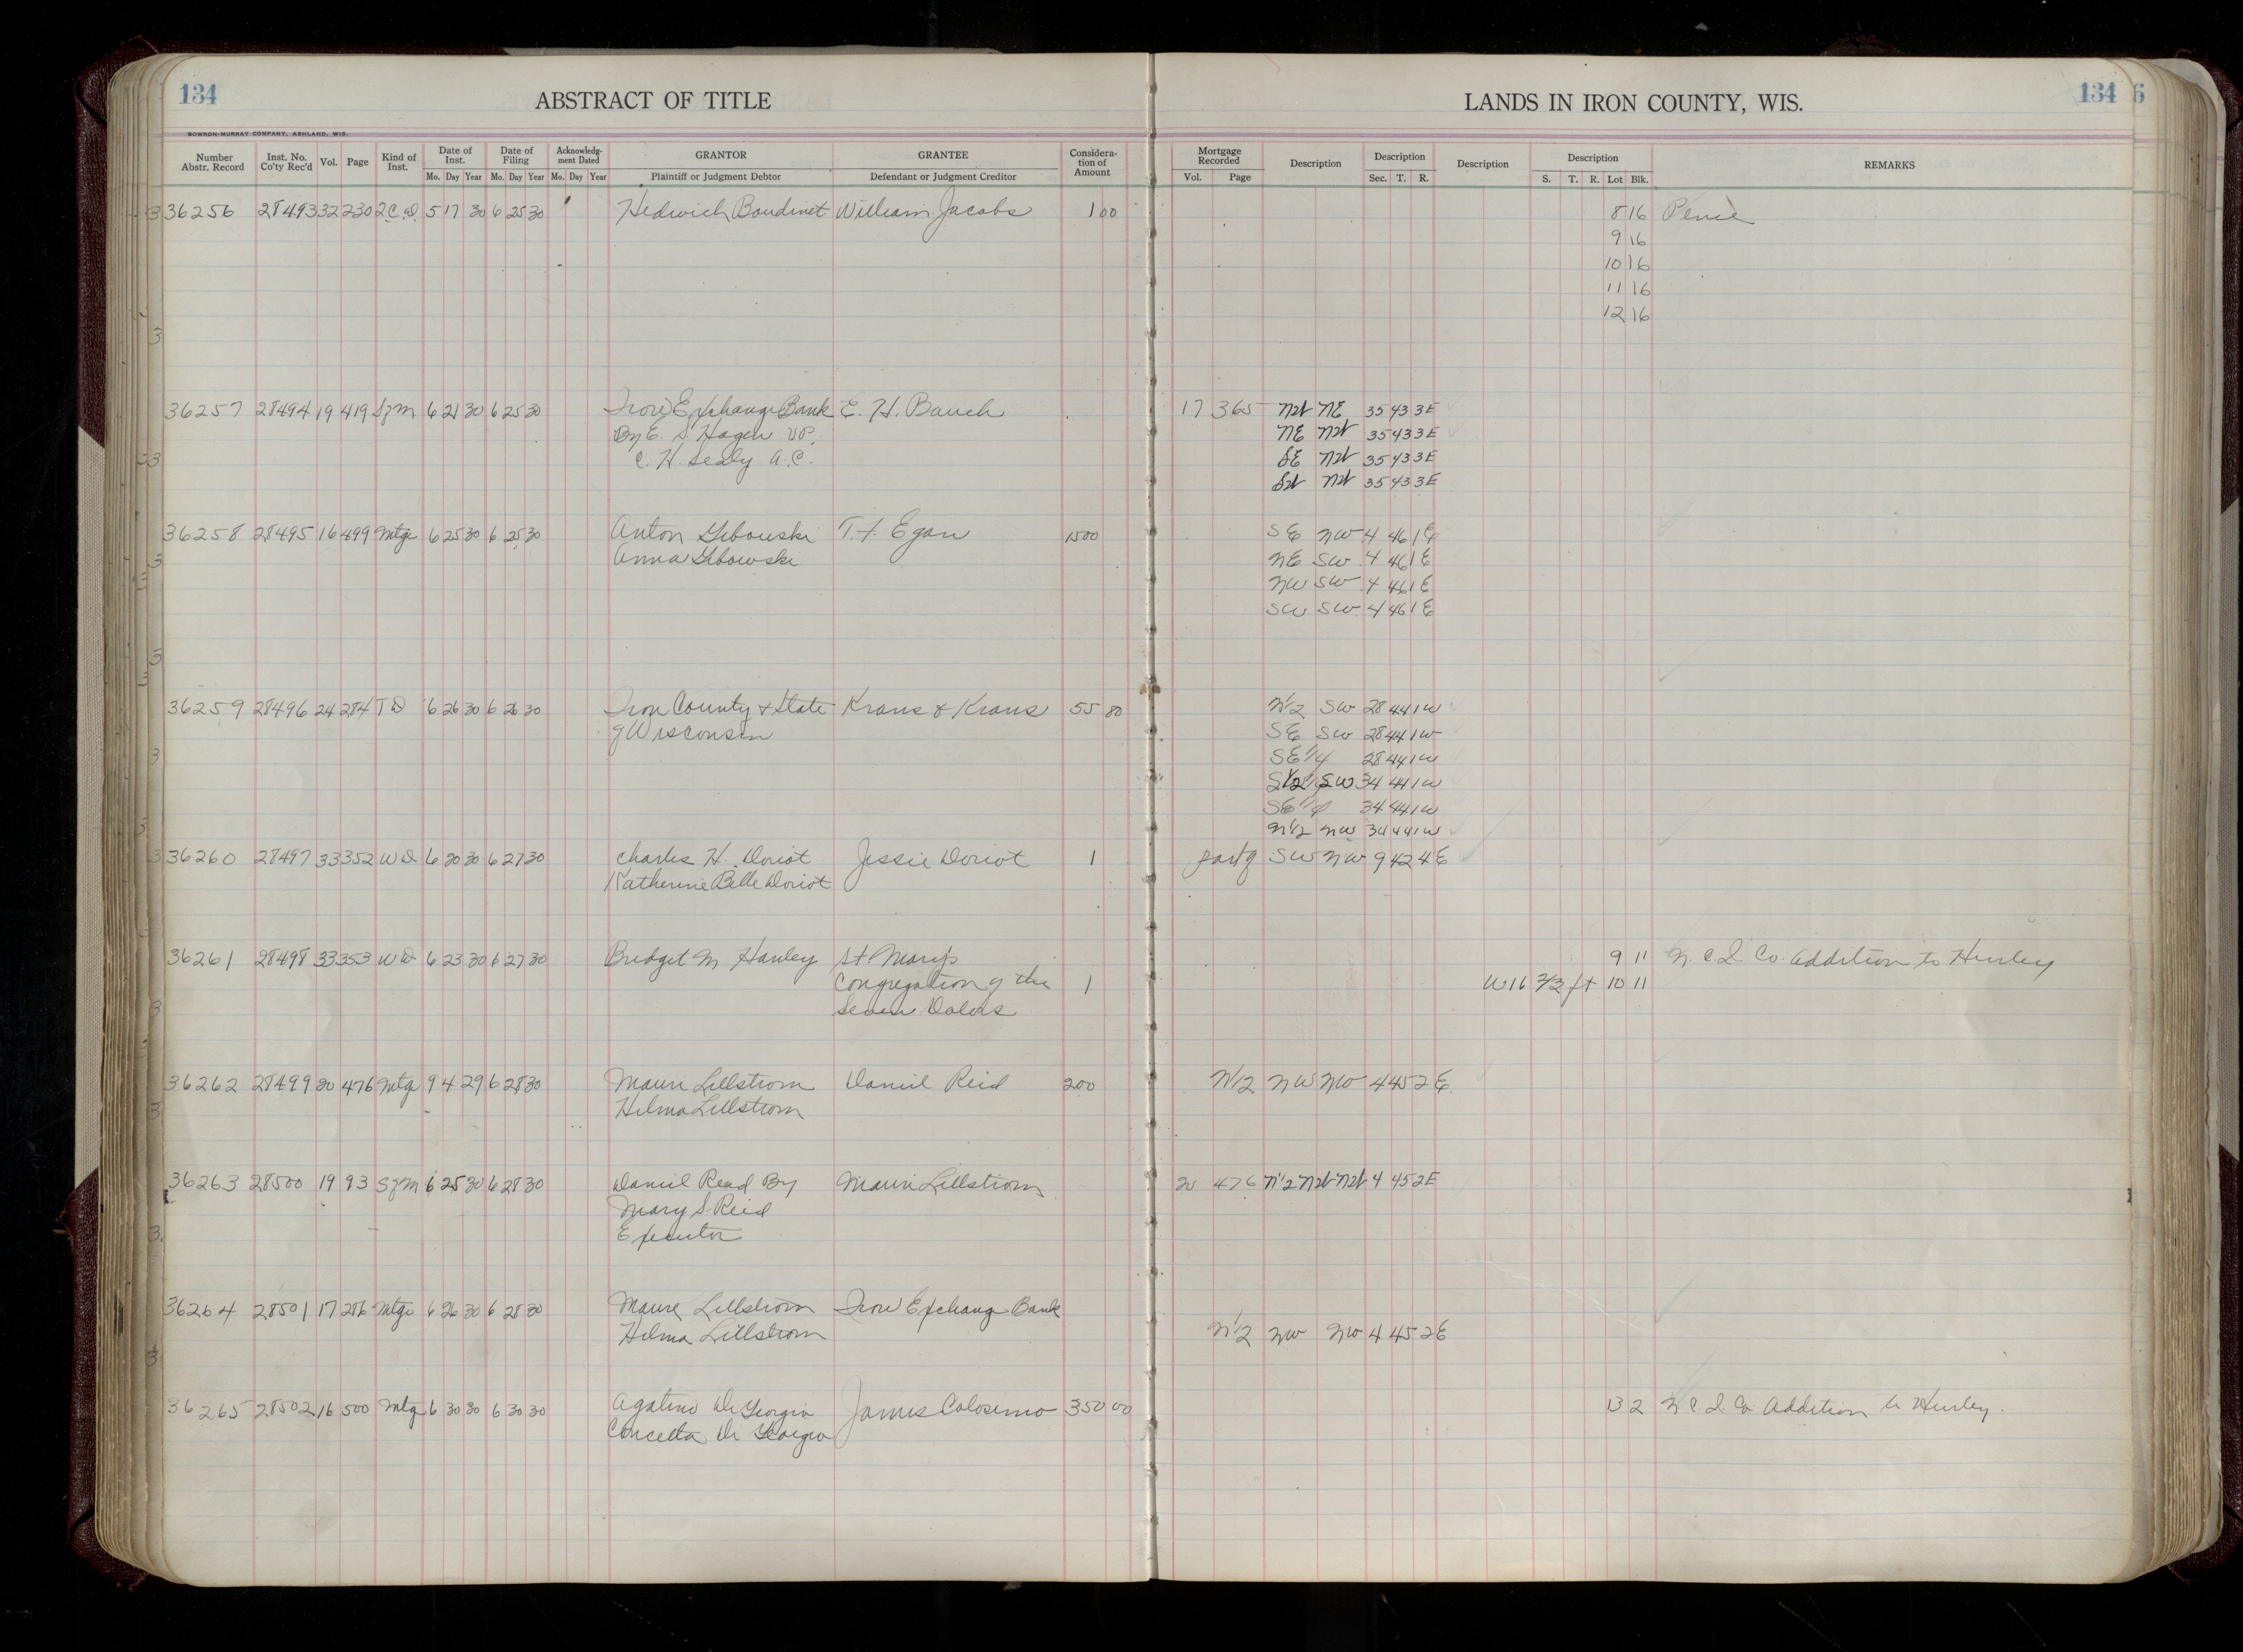 134
ABSTRACT OF TITLE
LANDS IN IRON COUNTY, WIS.
134 6
BOWRON-MURRAY COMPANY, ASHLAND, WIS.
Number Abstr. Record Inst. No. Co'ty Rec'd Vol. Page Kind of Inst. Date of Inst. Date of Filing Acknowledgment Dated GRANTOR GRANTEE Consideration of Amount Mortgage Recorded Description Description Description Description REMARKS
Mo. Day Year Mo. Day Year Mo. Day Year Plaintiff or Judgment Debtor Defendant or Judgment Creditor Vol. Page Sec. T. R. S. T. R. Lot Blk.
36256 28493 32 230 2 C. D. 5 17 30 6 25 30 Hedwich Boudinet William Jacobs 1 00 8 16 Pence
9 16
10 16
11 16
12 16
36257 28494 19 419 Szm 6 21 30 6 25 30 Iron Exchange Bank E. H. Bauch 17 365 NW NE 35 43 3E
By E. S. Hagen V.P. NE NW 35 43 3E
C. H. Sealy A.C. SE NW 35 43 3E
SW NW 35 43 3E
36258 28495 16 499 Mtge 6 25 30 6 25 30 Anton Gibowski T. F. Egan 1500 SE NW 4 46 1E
Anna Gibowski NE SW 4 46 1E
NW SW 4 46 1E
SW SW 4 46 1E
36259 28496 24 284 T D 6 26 30 6 26 30 Iron County & State Kraus & Kraus 55 80 N1/2 SW 28 44 1W
of Wisconsin SE SW 28 44 1W
SE 1/4 28 44 1W
S1/2 SW 34 44 1W
SE 1/4 34 44 1W
N1/2 NW 34 44 1W
36260 28497 33 352 W D 6 20 30 6 27 30 Charles H. Doriot Jessie Doriot 1 part of SW NW 9 42 4E
Katherine Belle Doriot
36261 28498 33 353 W D 6 23 30 6 27 30 Bridget M Hanley St. Mary's 9 11 N. C. I. Co. Addition to Hurley
Congregation of the 1 W 16 2/3 ft 10 11
Seven Dolors
36262 28499 20 476 Mtge 9 4 29 6 28 30 Mauri Lillstrom Daniel Reid 200 N1/2 NW NW 4 45 2E
Hilma Lillstrom
36263 28500 19 93 Szm 6 25 30 6 28 30 Daniel Read By Mauri Lillstrom 20 476 N1/2 NW NW 4 45 2E
Mary S. Reid
Executor
36264 28501 17 286 Mtge 6 26 30 6 28 30 Maure Lillstrom Iron Exchange Bank
Hilma Lillstrom N1/2 NW NW 4 45 2E
36265 28502 16 500 Mtg 6 30 30 6 30 30 Agatino De Georgio James Colosimo 350 00 13 2 N C I Co Addition to Hurley.
Concetta De Georgio